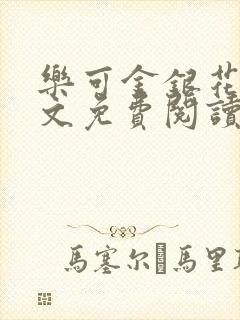 樂可金銀花
文免費閱讀
馬塞尔 馬里